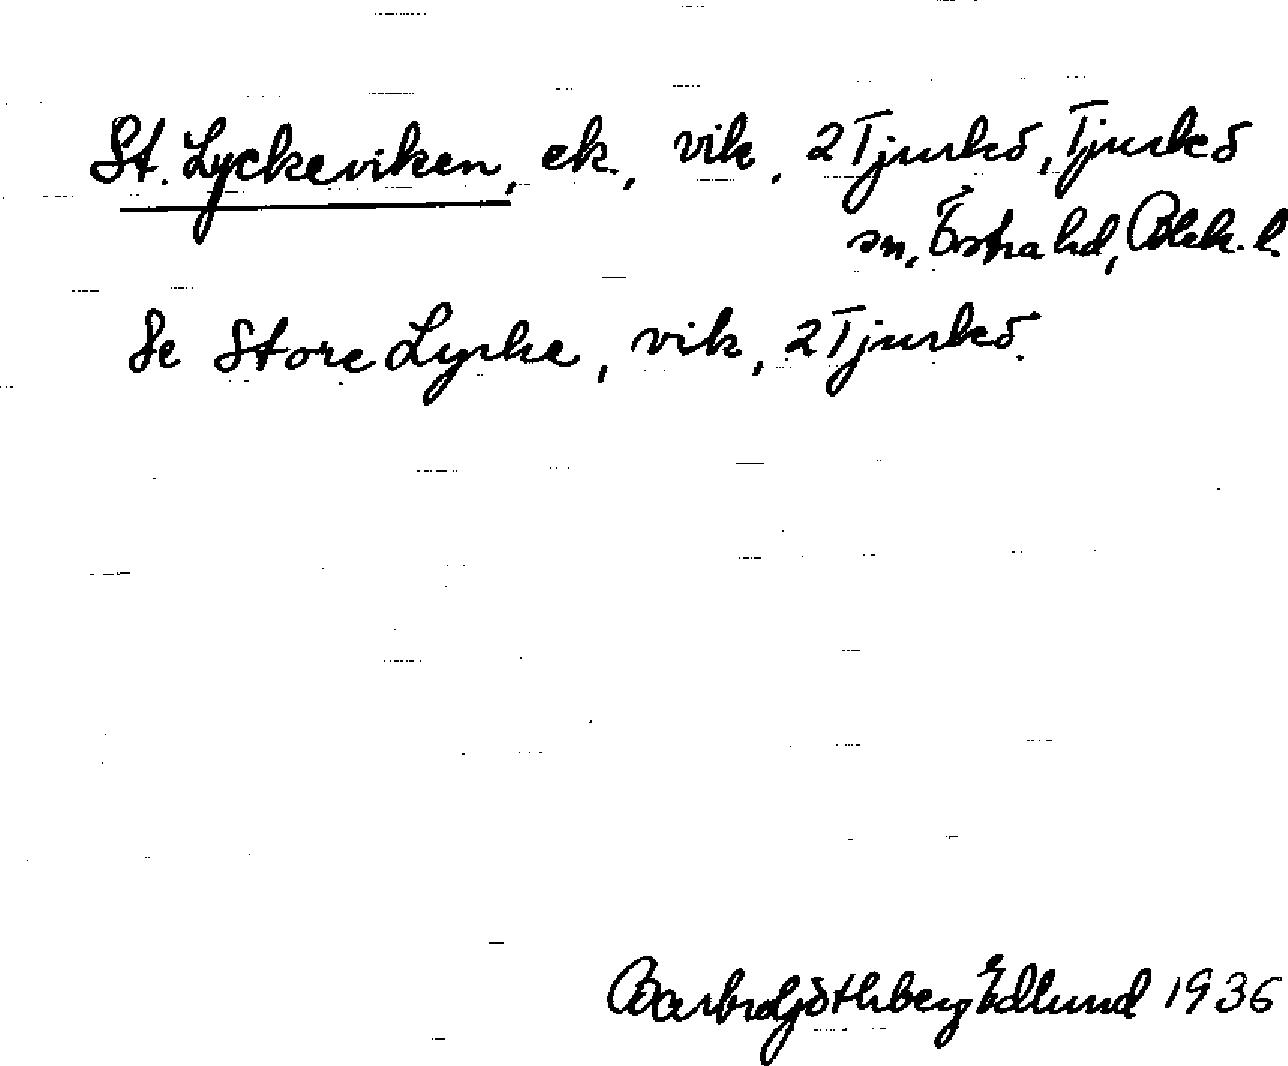 St. Lyckeviken, ek., vik, 2 Tjurkö, Tjurkö
sn, Östra hd, Blek. l.
Se Store Lycke, vik, 2 Tjurkö.
Barbro Göthberg Edlund 1936